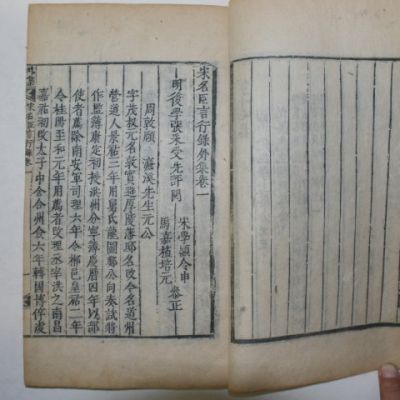 宋名臣言行錄外集卷一
明後學張采受先評閱
宋學顯令申
馬嘉植培元 參正
周敦頤 濂溪先生元公
字茂叔元名敦實避厚陵藩邸名改今名道州
營道人景祐三年用舅氏龍圖鄭公向奏試將
作監簿康定初授洪州分寧簿慶曆四年以部
使者薦除南安軍司理六年令郴邑皇祐二年
令桂陽至和元年用薦者改理丞宰洪之南昌
嘉祐初改太子中舍僉合州六年轉國博倅虔